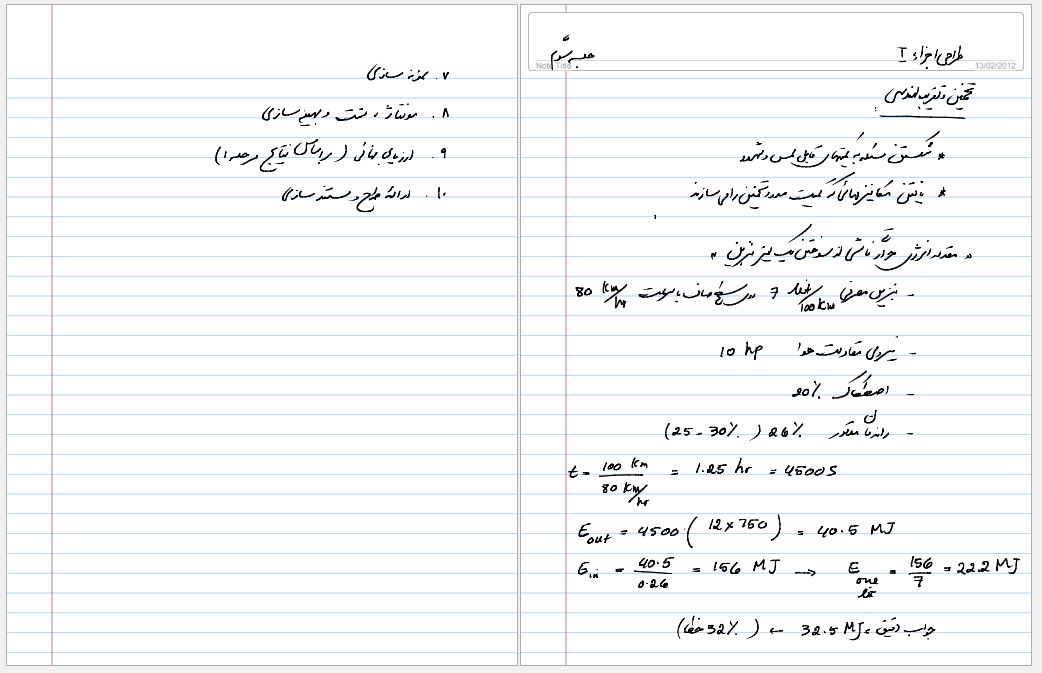 طراحی اجزاء I
جلسه سوّم
Note Title
13/02/2012
تخمین و تقریب مهندسی :
* شکستن مسئله به کمیتهای قابل لمس و شهود
* یافتن مکانیزمهائی که کمیت مورد تخمین را می سازند
" مقدار انرژی حرارتی ناشی از سوختن یک لیتر بنزین "
- بنزین مصرفی 7 لیتر/100 Km در سطح صاف با سرعت 80 Km/hr
- نیروی مقاومت هوا 10 hp
- اصطکاک 20%
- راندمان موتور 26% (25 - 30%)
t = 100 Km / 80 Km/hr = 1.25 hr = 4500 S
E out = 4500 (12 x 750) = 40.5 MJ
E in = 40.5 / 0.26 = 156 MJ → E one lit = 156 / 7 = 22.2 MJ
جواب دقیق = 32.5 MJ ← (32% خطا)
۷. نمونه سازی
۸. مونتاژ، تست و بهینه سازی
۹. ارزیابی نهائی (براساس نتایج مرحله ۱)
۱۰. ارائهٔ طرح و مستند سازی